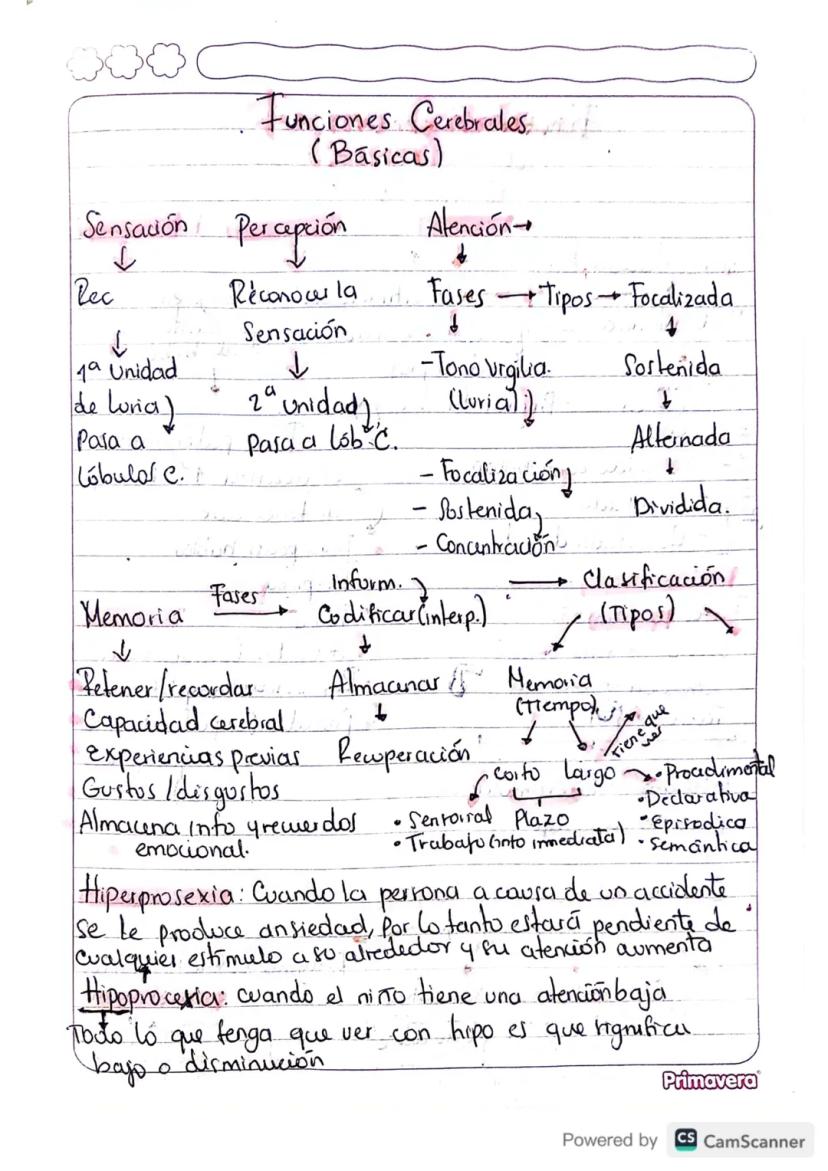 Funciones Cerebrales
(Básicas)
Sensación Percepción Atención→
Rec Reconocer la Fases → Tipos → Focalizada
Sensación
1ª Unidad - Tono vigilia. Sostenida
de Luria) 2ª Unidad) (Luria)
Pasa a pasa a lób. C. Alternada
Lóbulos C. - Focalización
- Sostenida Dividida.
- Concentración
Memoria Fases → Inform. → Clasificación
Codificar (interp.) (Tipos)
Retener/recordar Almacenar Memoria
Capacidad cerebral (Tiempo) Tiene que ver
experiencias previas Recuperación
Gustos/disgustos corto Largo → • Procedimental
• Declarativa
Almacena info y recuerdos • Sensorial Plazo • Episodica
emocional. • Trabajo (info inmediata) • Semántica
Hiperprosexia: Cuando la persona a causa de un accidente
se le produce ansiedad, por lo tanto estará pendiente de
cualquier estimulo a su alrededor y su atención aumenta
Hipoprocexia: cuando el niño tiene una atención baja
Todo lo que tenga que ver con hipo es que significa
bajo o disminución
Primavera
Powered by CS CamScanner